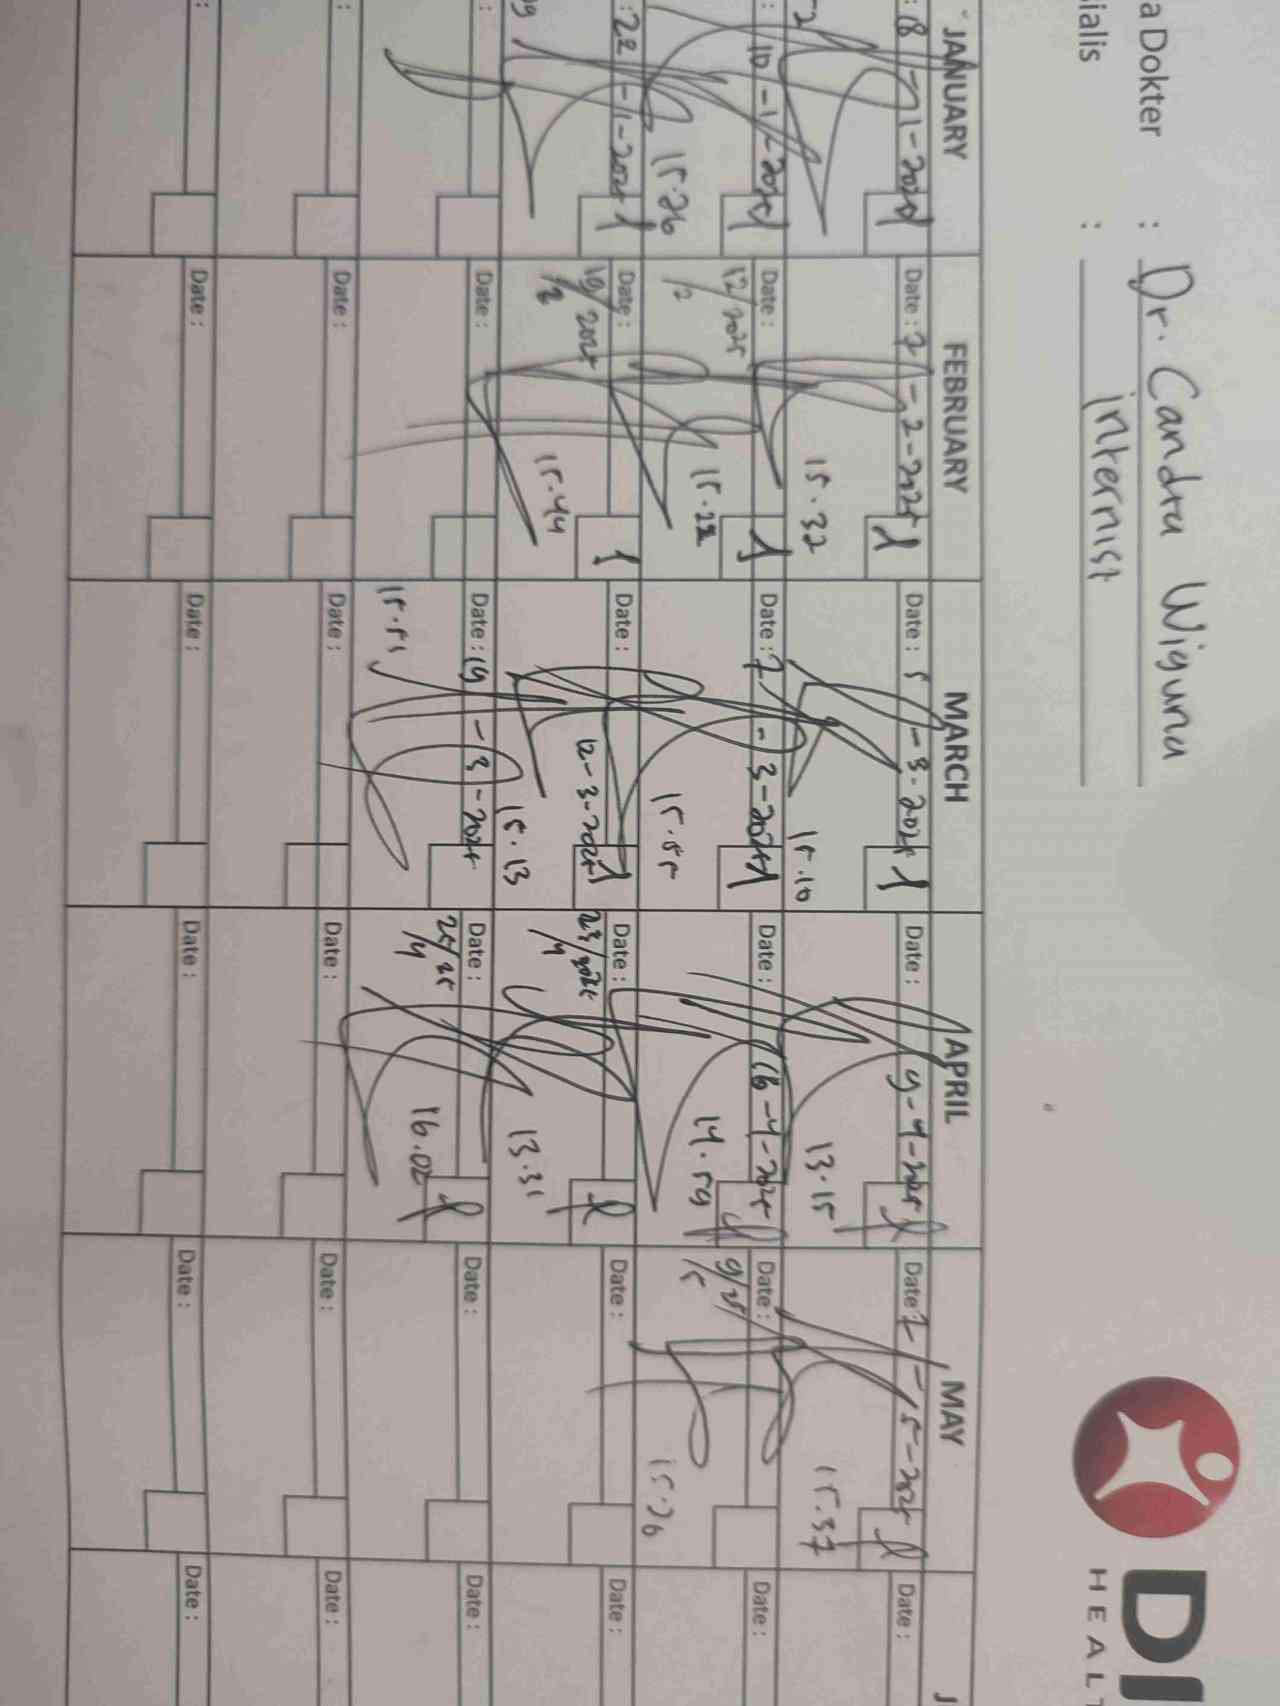 a Dokter : Dr. Candra Wiguna
ialis : internist
DI
HEALT
JANUARY FEBRUARY MARCH APRIL MAY J
: 8-1-2025 Date : 7-2-2025 Date : 5-3-2025 Date : 9-4-2025 Date : 7-5-2025 Date :
15.32 15.10 13.15 15.37
: 10-1-2025 Date : 12/2 2025 Date : 7-3-2025 Date : 16-4-2025 Date : 9/5/25 Date :
15.26 15.22 15.55 14.59 15.26
: 22-1-2025 Date : 19/2 2025 Date : 12-3-2025 Date : 23/4 2025 Date : Date :
15.44 15.13 13.31
: Date : Date : 19-3-2025 Date : 25/4 25 Date : Date :
15.51 16.02
: Date : Date : Date : Date : Date :
: Date : Date : Date : Date : Date :